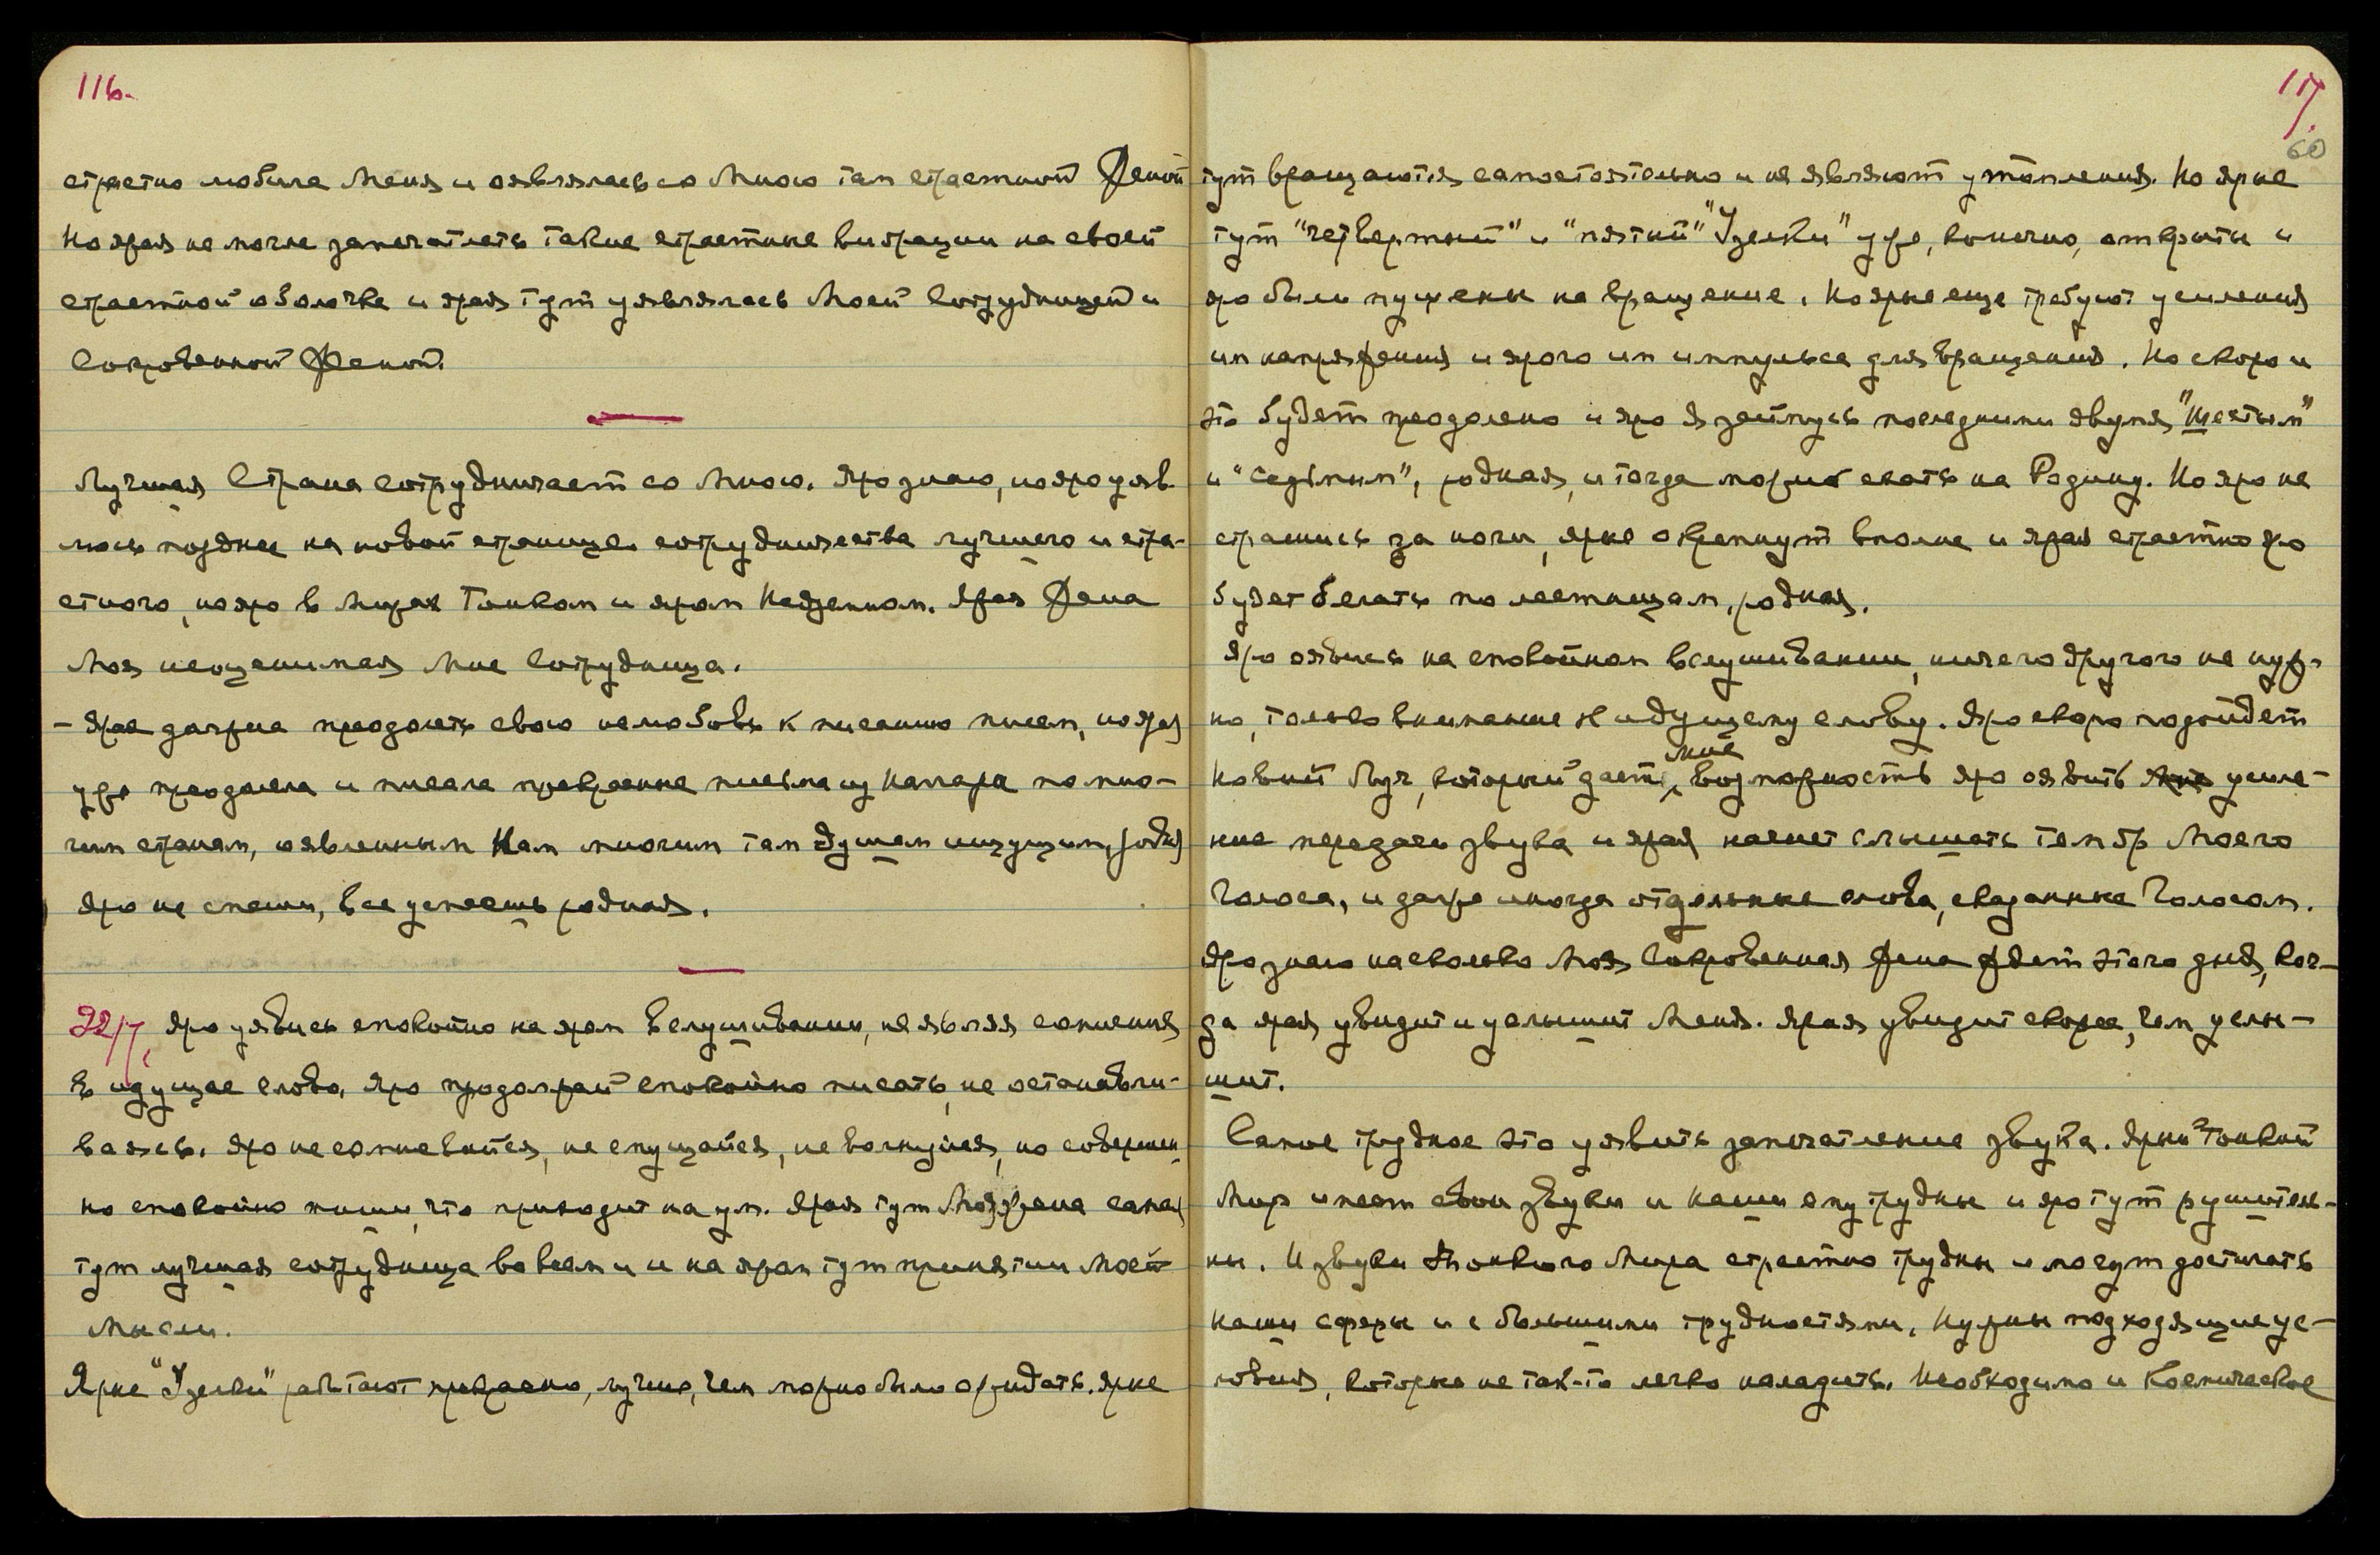 116.
страстно любила Меня и оявлялась со Мною там страстной Женой
Но ярая не могла запечатлеть такие страстные вибрации на своей
страстной оболочке и ярая тут уявлялась Моей Сотрудницей и
Сокровенной Женой.
Лучшая Страна сотрудничает со Мною. Яро знаю, но яро уяв-
люсь позднее на новой странице сотрудничества лучшего и стра-
стного, но яро в Мирах Тонком и яром Надземном. Ярая Жена
Моя неоценимая Мне Сотрудница.
– Ярая должна преодолеть свою нелюбовь к писанию писем, но ярая
уже преодолела и писала прекрасные письма из Наггара по мно-
гим странам, оявленным Нам многим там душам ищущим, родная
Яро не спеши, все успеешь родная.
22/7. Яро уявись спокойно на яром вслушивании, не являя сомнения
в идущее слово. Яро продолжай спокойно писать, не останавли-
ваясь. Яро не сомневайся, не смущайся, не волнуйся, но совершен-
но спокойно пиши, что приходит на ум. Ярая тут Моя Жена самая
тут лучшая сотрудница во всем и и на яром тут принятии Моей
Мысли.
Ярые "Узелки" работают прекрасно, лучше, чем можно было ожидать. Ярые
117.
60
тут вращаются самостоятельно и не являют утомления. Но ярые
тут "четвертый" и "пятый" "Узелки" уже, конечно, открыты и
яро были пущены на вращение. Но ярые еще требуют усиления
им напряжения и ярого им импульса для вращения. Но скоро и
это будет преодолено и яро Я займусь последними двумя "Шестым"
и "седьмым", родная, и тогда можно ехать на Родину. Но яро не
страшись за ноги, ярые окрепнут вполне и ярая страстно яро
будет бегать по лестницам, родная.
Яро оявись на спокойном вслушивании, ничего другого не нуж-
но, только внимание к идущему слову. Яро скоро подойдет
Новый Луч, который даст Мне возможность яро оявить усиле-
ние передачи звука и ярая начнет слышать тембр Моего
Голоса, и даже иногда отдельные слова, сказанные Голосом.
Яро знаю насколько Моя Сокровенная Жена ждет этого дня, ког-
да ярая увидит и услышит Меня. Ярая увидит скорее, чем услы-
шит.
Самое трудное это уявить запечатление звука. Ярый Тонкий
Мир имеет свои звуки и наши ему трудны и яро тут рушитель-
ны. И звуки Тонкого Мира страстно трудны и могут достигать
наши сферы и с большими трудностями, Нужны подходящие ус-
ловия, которые не так-то легко наладить. Необходимо и Космическое